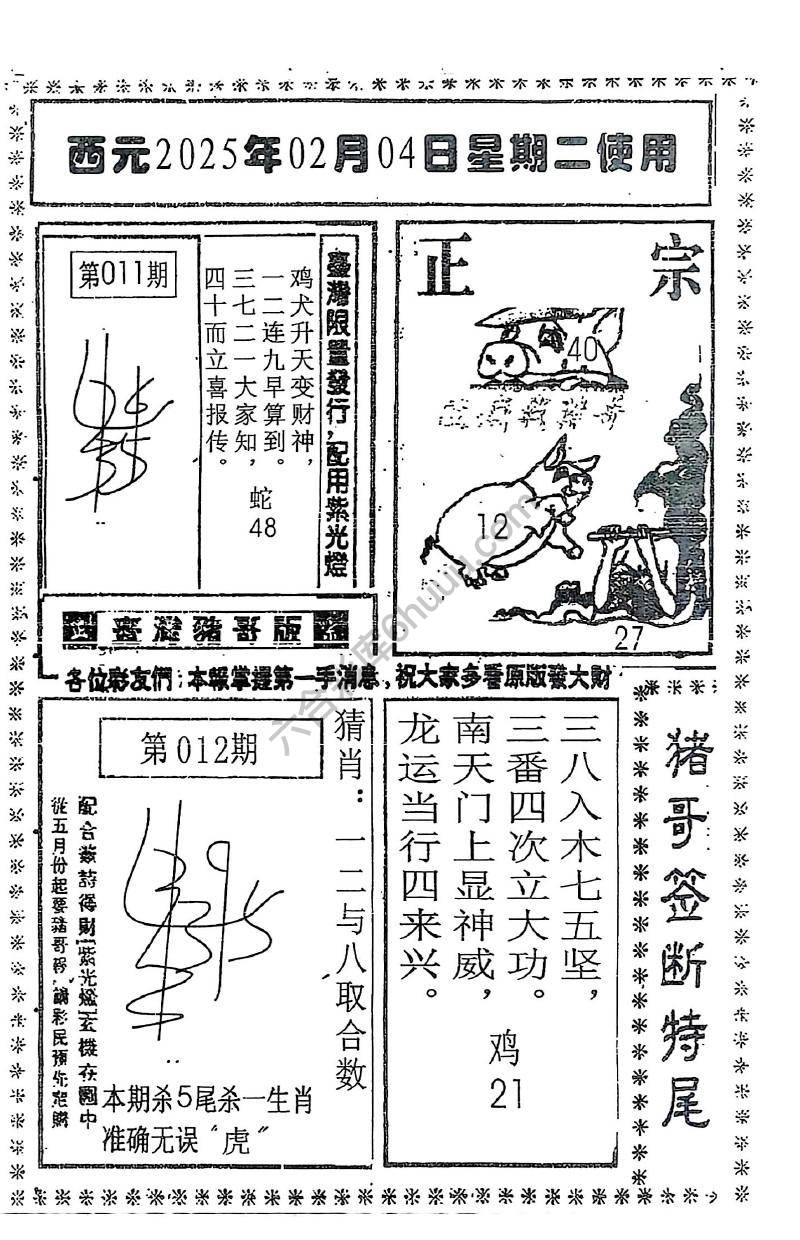 西元2025年02月04日星期二使用
第011期
鸡犬升天变财神，
一二连九早算到。
三七二一大家知，
四十而立喜报传。
蛇
48
臺灣限量發行，配用紫光燈
正宗
40
12
27
臺灣豬哥版
各位彩友們：本報掌握第一手消息，祝大家多看原版發大財
第012期
猜肖：一二与八取合数
配合簽詩得財紫光燈玄機在圖中
從五月份起要豬哥報，請彩民預先定購
本期杀5尾杀一生肖
准确无误“虎”
三八入木七五坚，
三番四次立大功。
南天门上显神威，
龙运当行四来兴。
鸡
21
猪哥签断特尾
六合彩库6huuu.com